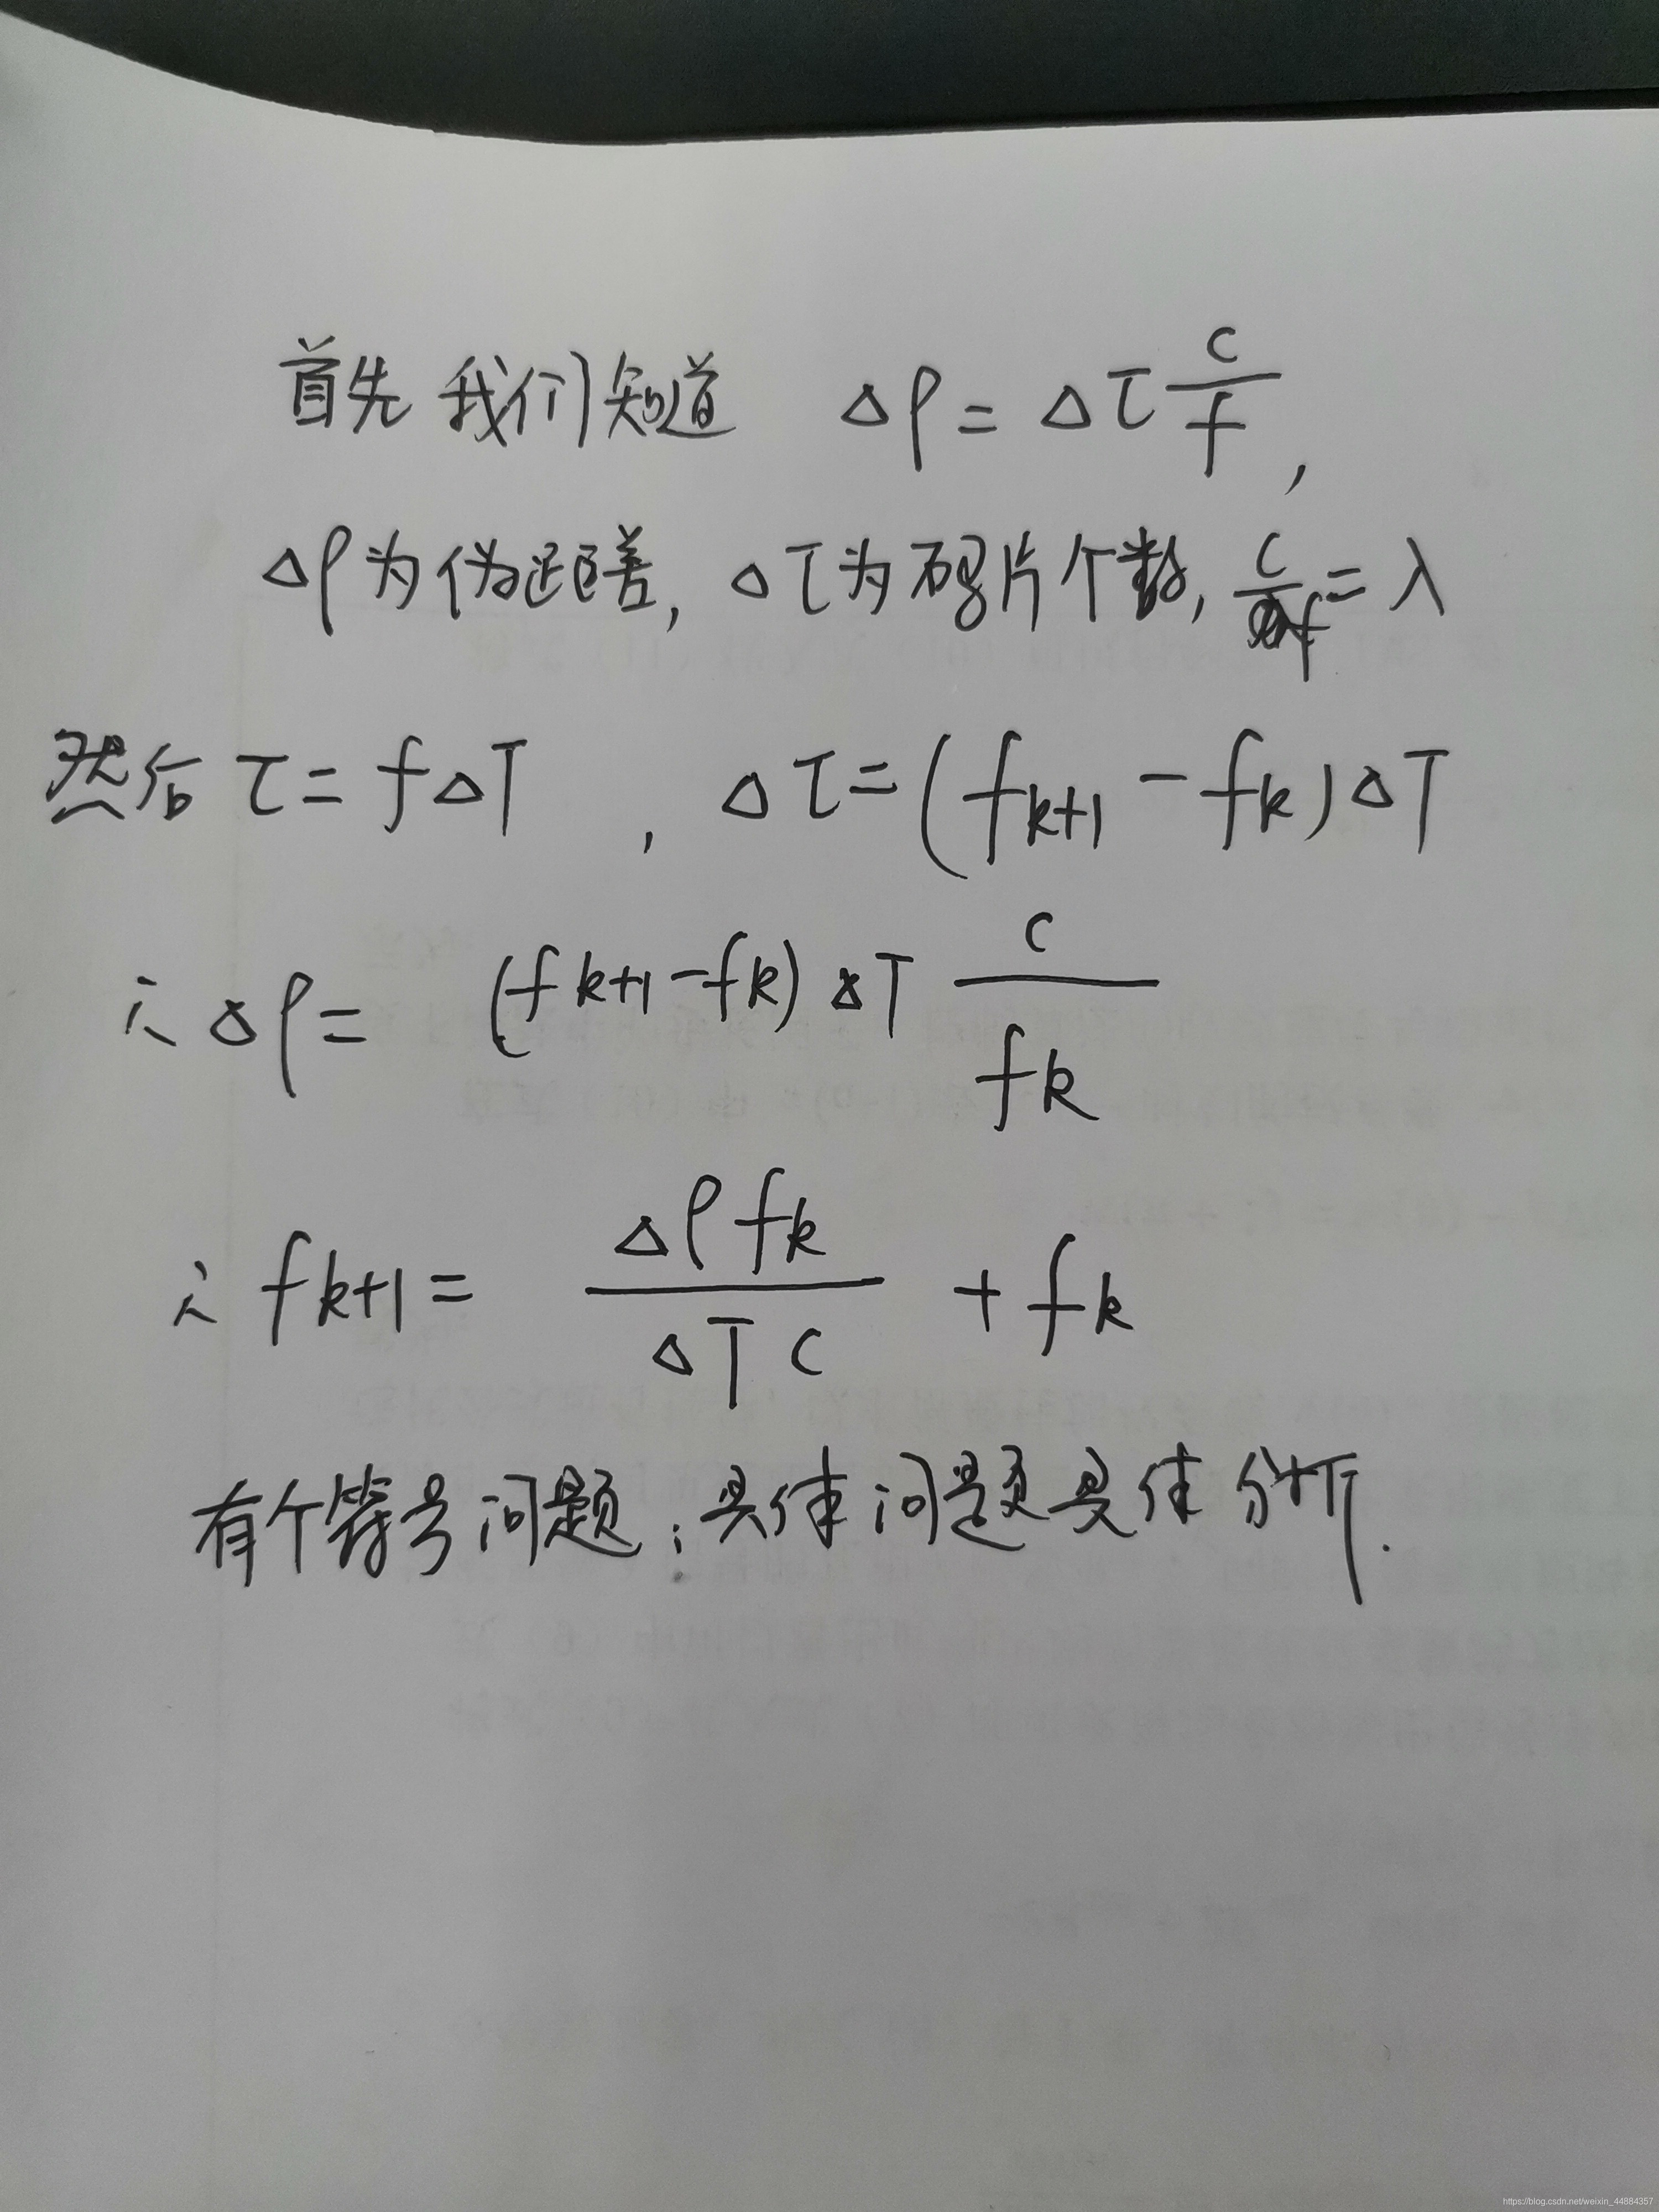 首先我们知道 Δρ = Δτ c/f ,
Δρ为伪距差, Δτ为码片个数, c/f = λ
然后 τ = fΔT , Δτ = (fk+1 - fk) ΔT
∴ Δρ = (fk+1 - fk) ΔT c/fk
∴ fk+1 = Δρ fk / ΔT c + fk
有个符号问题; 具体问题具体分析.
https://blog.csdn.net/weixin_44884357